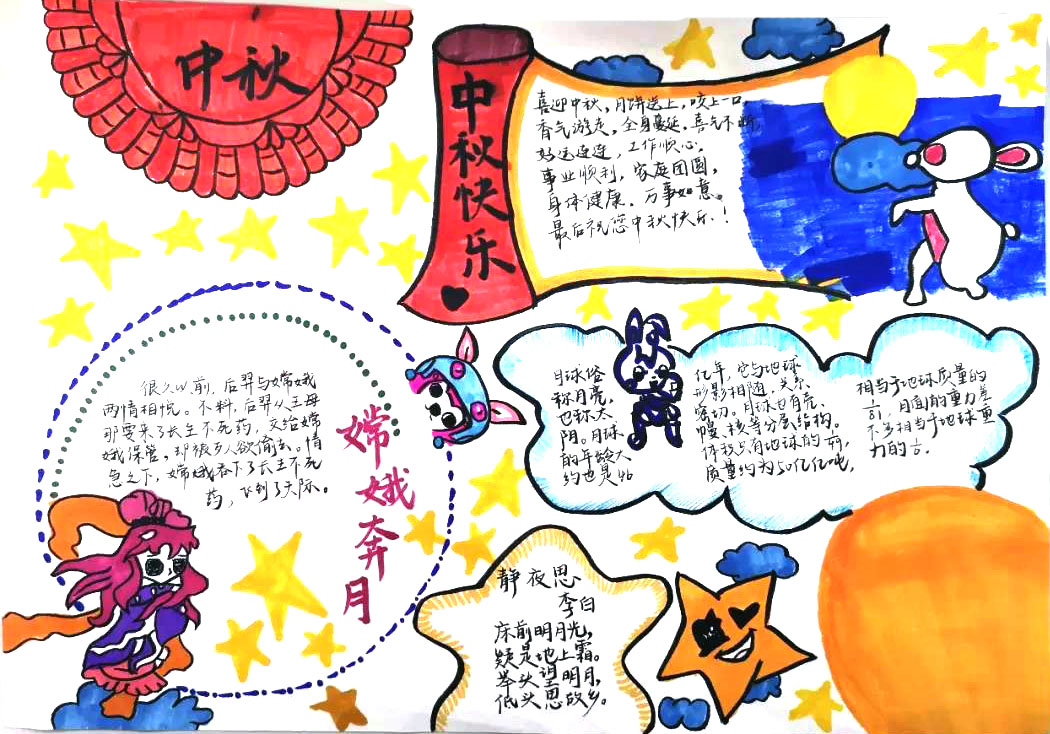 中秋
中秋快乐
喜迎中秋,月饼送上,咬上一口,
香气游走,全身蔓延,喜气不断,
好运连连,工作顺心,
事业顺利,家庭团圆,
身体健康,万事如意。
最后祝您中秋快乐!
很久以前,后羿与嫦娥
两情相悦。不料,后羿从王母
那要来了长生不死药,交给嫦
娥保管,却被歹人欲偷去。情
急之下,嫦娥吞下了长生不死
药,飞到了天际。
嫦娥奔月
月球俗
称月亮,
也称太
阴。月球
的年龄大
约也是46
亿年,它与地球
形影相随,关系
密切。月球也有壳、
幔、核等分层结构。
体积只有地球的1/49,
质量约为50亿亿吨,
相当于地球质量的
1/81,月面的重力差
不多相当于地球重
力的1/6。
静夜思
李白
床前明月光,
疑是地上霜。
举头望明月,
低头思故乡。